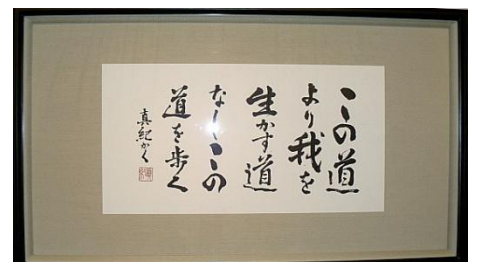 この道
より我を
生かす道
なしこの
道を歩く
真紀かく